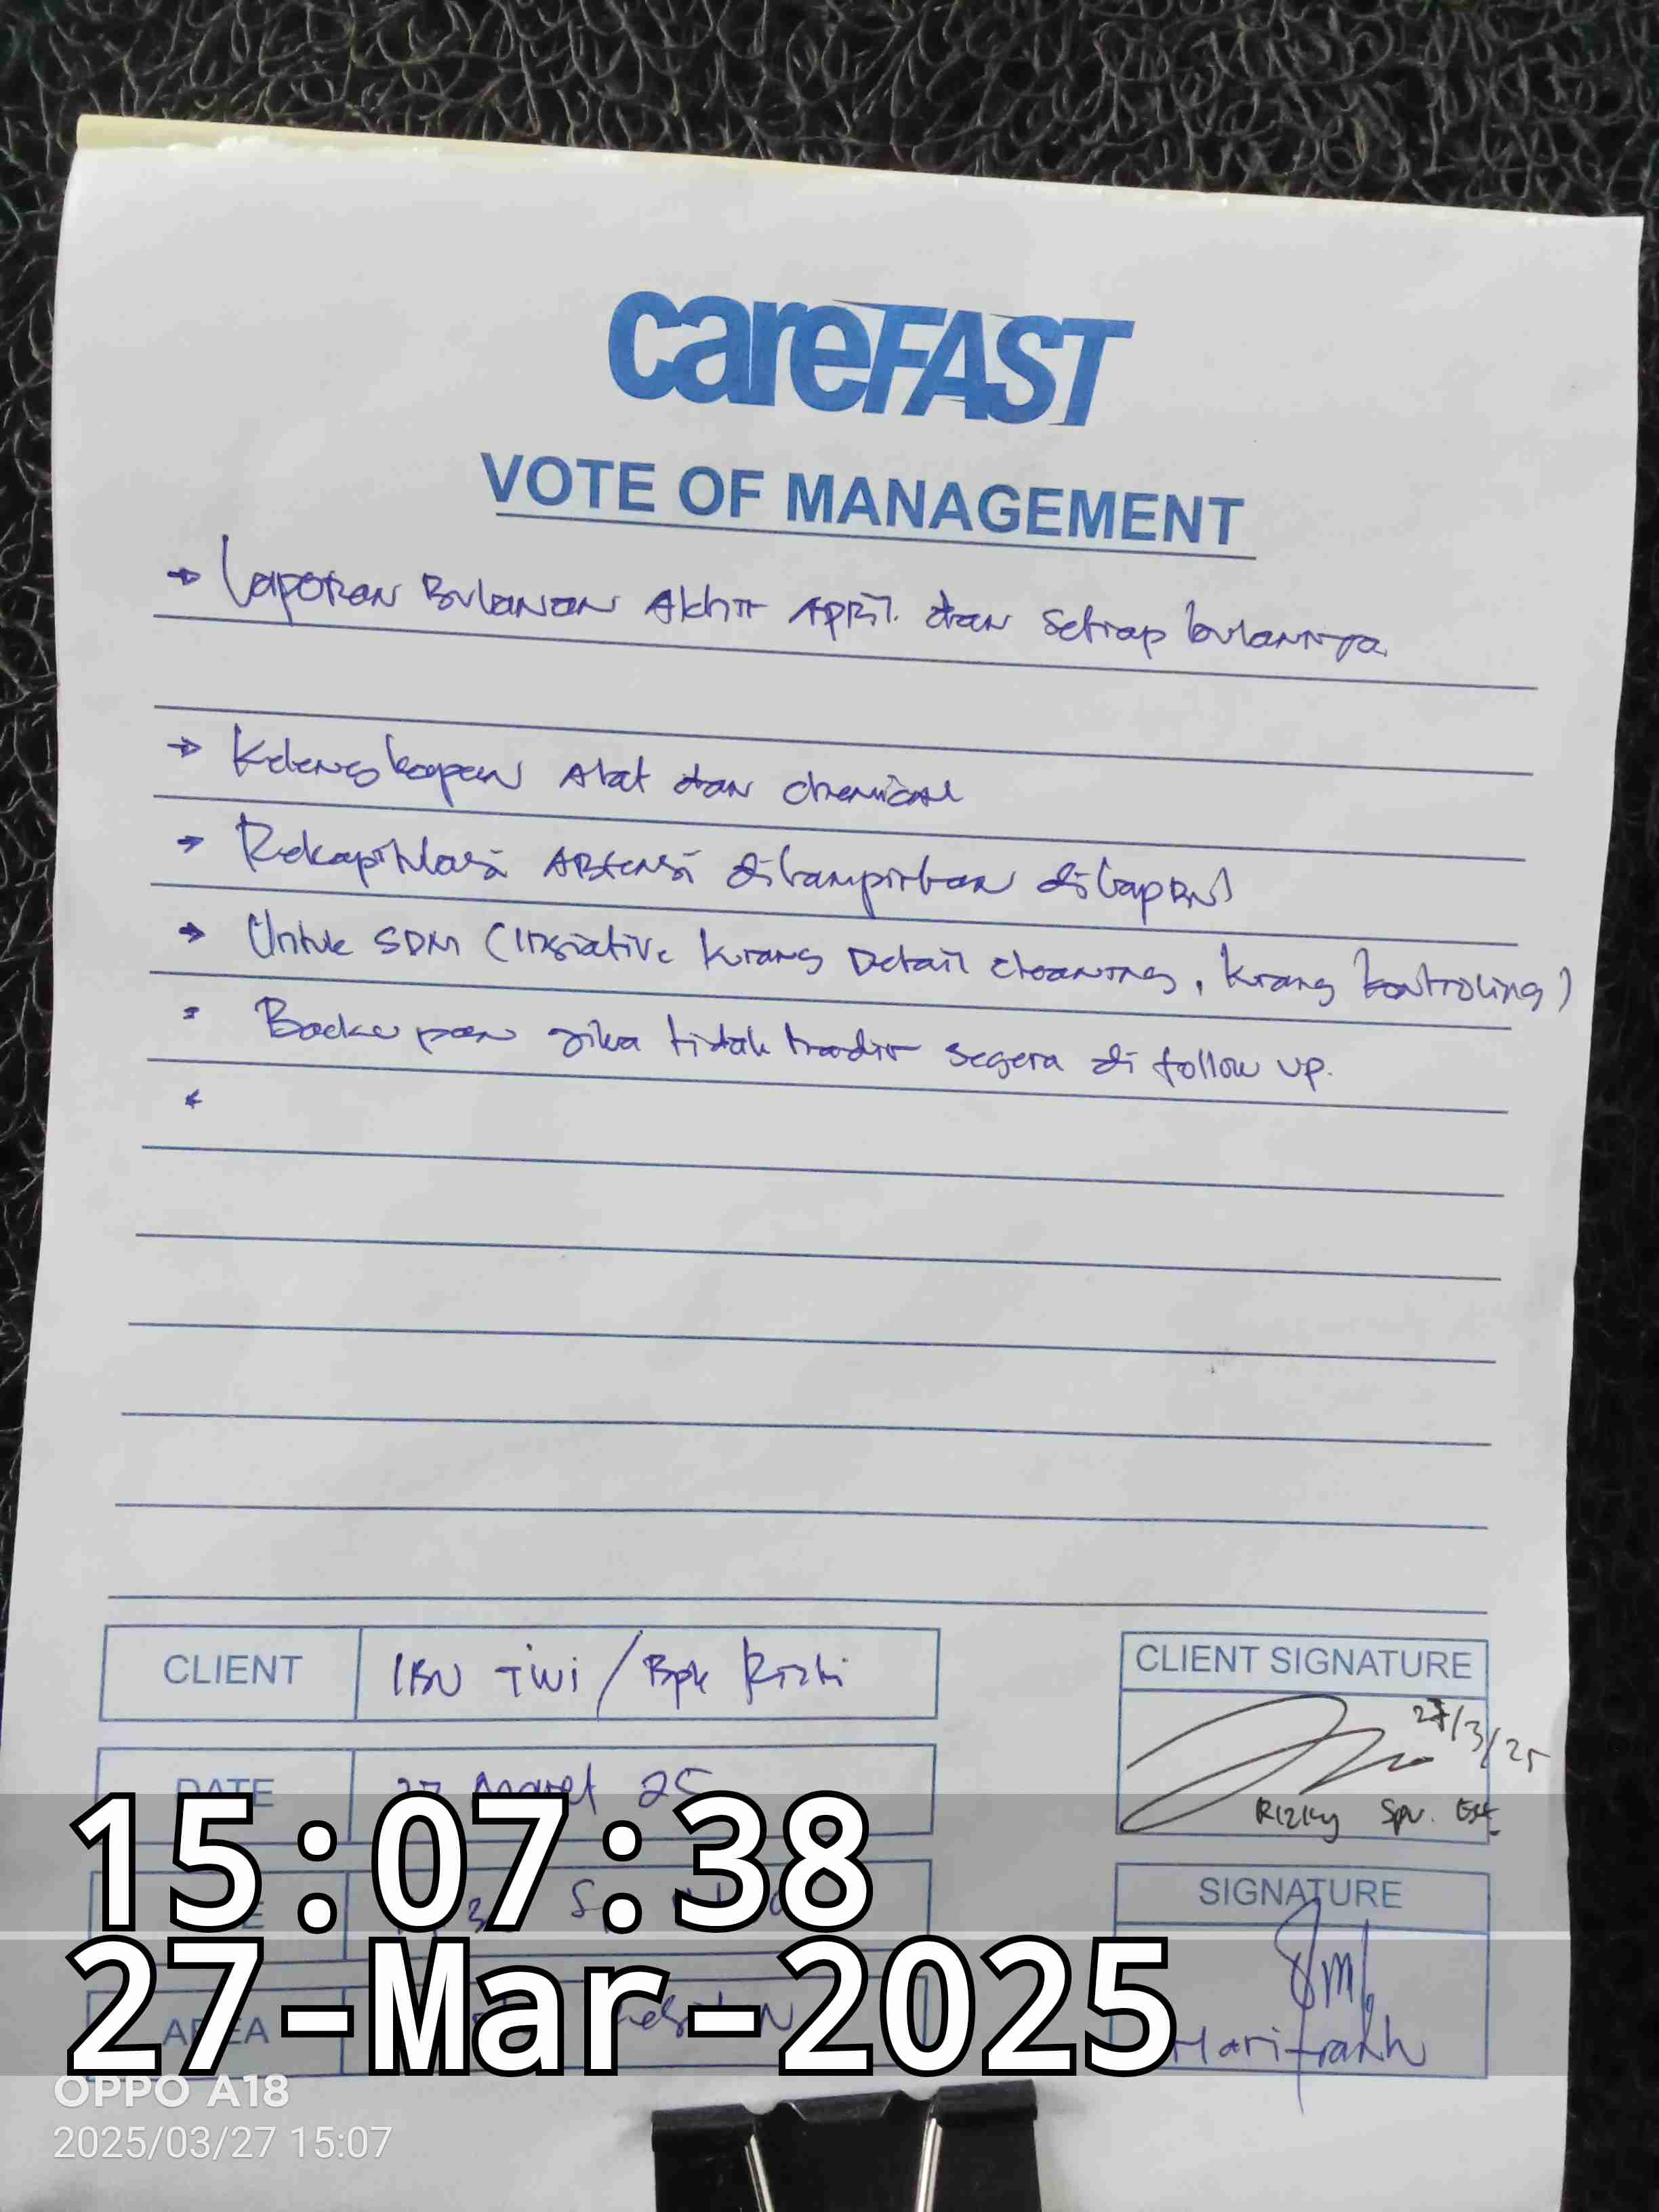 careFAST
VOTE OF MANAGEMENT
→ Laporan Bulanan Akhir April dan setiap bulannya.
→ Kelengkapan Alat dan chemical
→ Rekapitulasi ABsensi dilampirkan di lapBul
→ Untuk SDM (Insiative kurang Detail cleaning, kurang kontroling)
Backupan jika tidak hadir segera di follow up.
CLIENT
IBU Tiwi / Bpk Rizki
CLIENT SIGNATURE
27/3/25
Rizky Spv.
DATE
27 Maret 25
SIGNATURE
AREA
15:07:38
27-Mar-2025
OPPO A18
2025/03/27 15:07